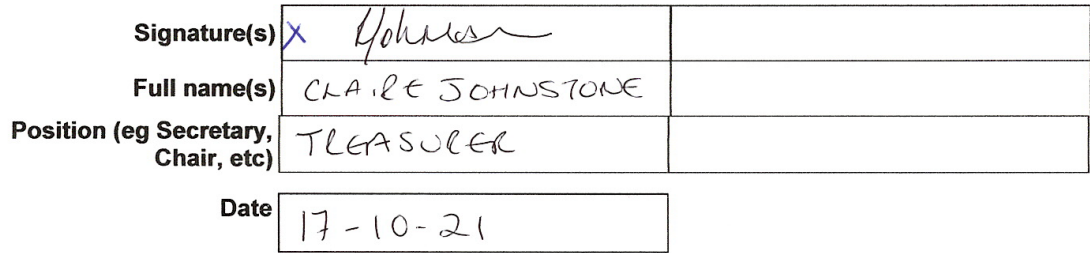 Signature(s) X
Full name(s) CLAIRE JOHNSTONE
Position (eg Secretary, Chair, etc) TREASURER
Date 17-10-21